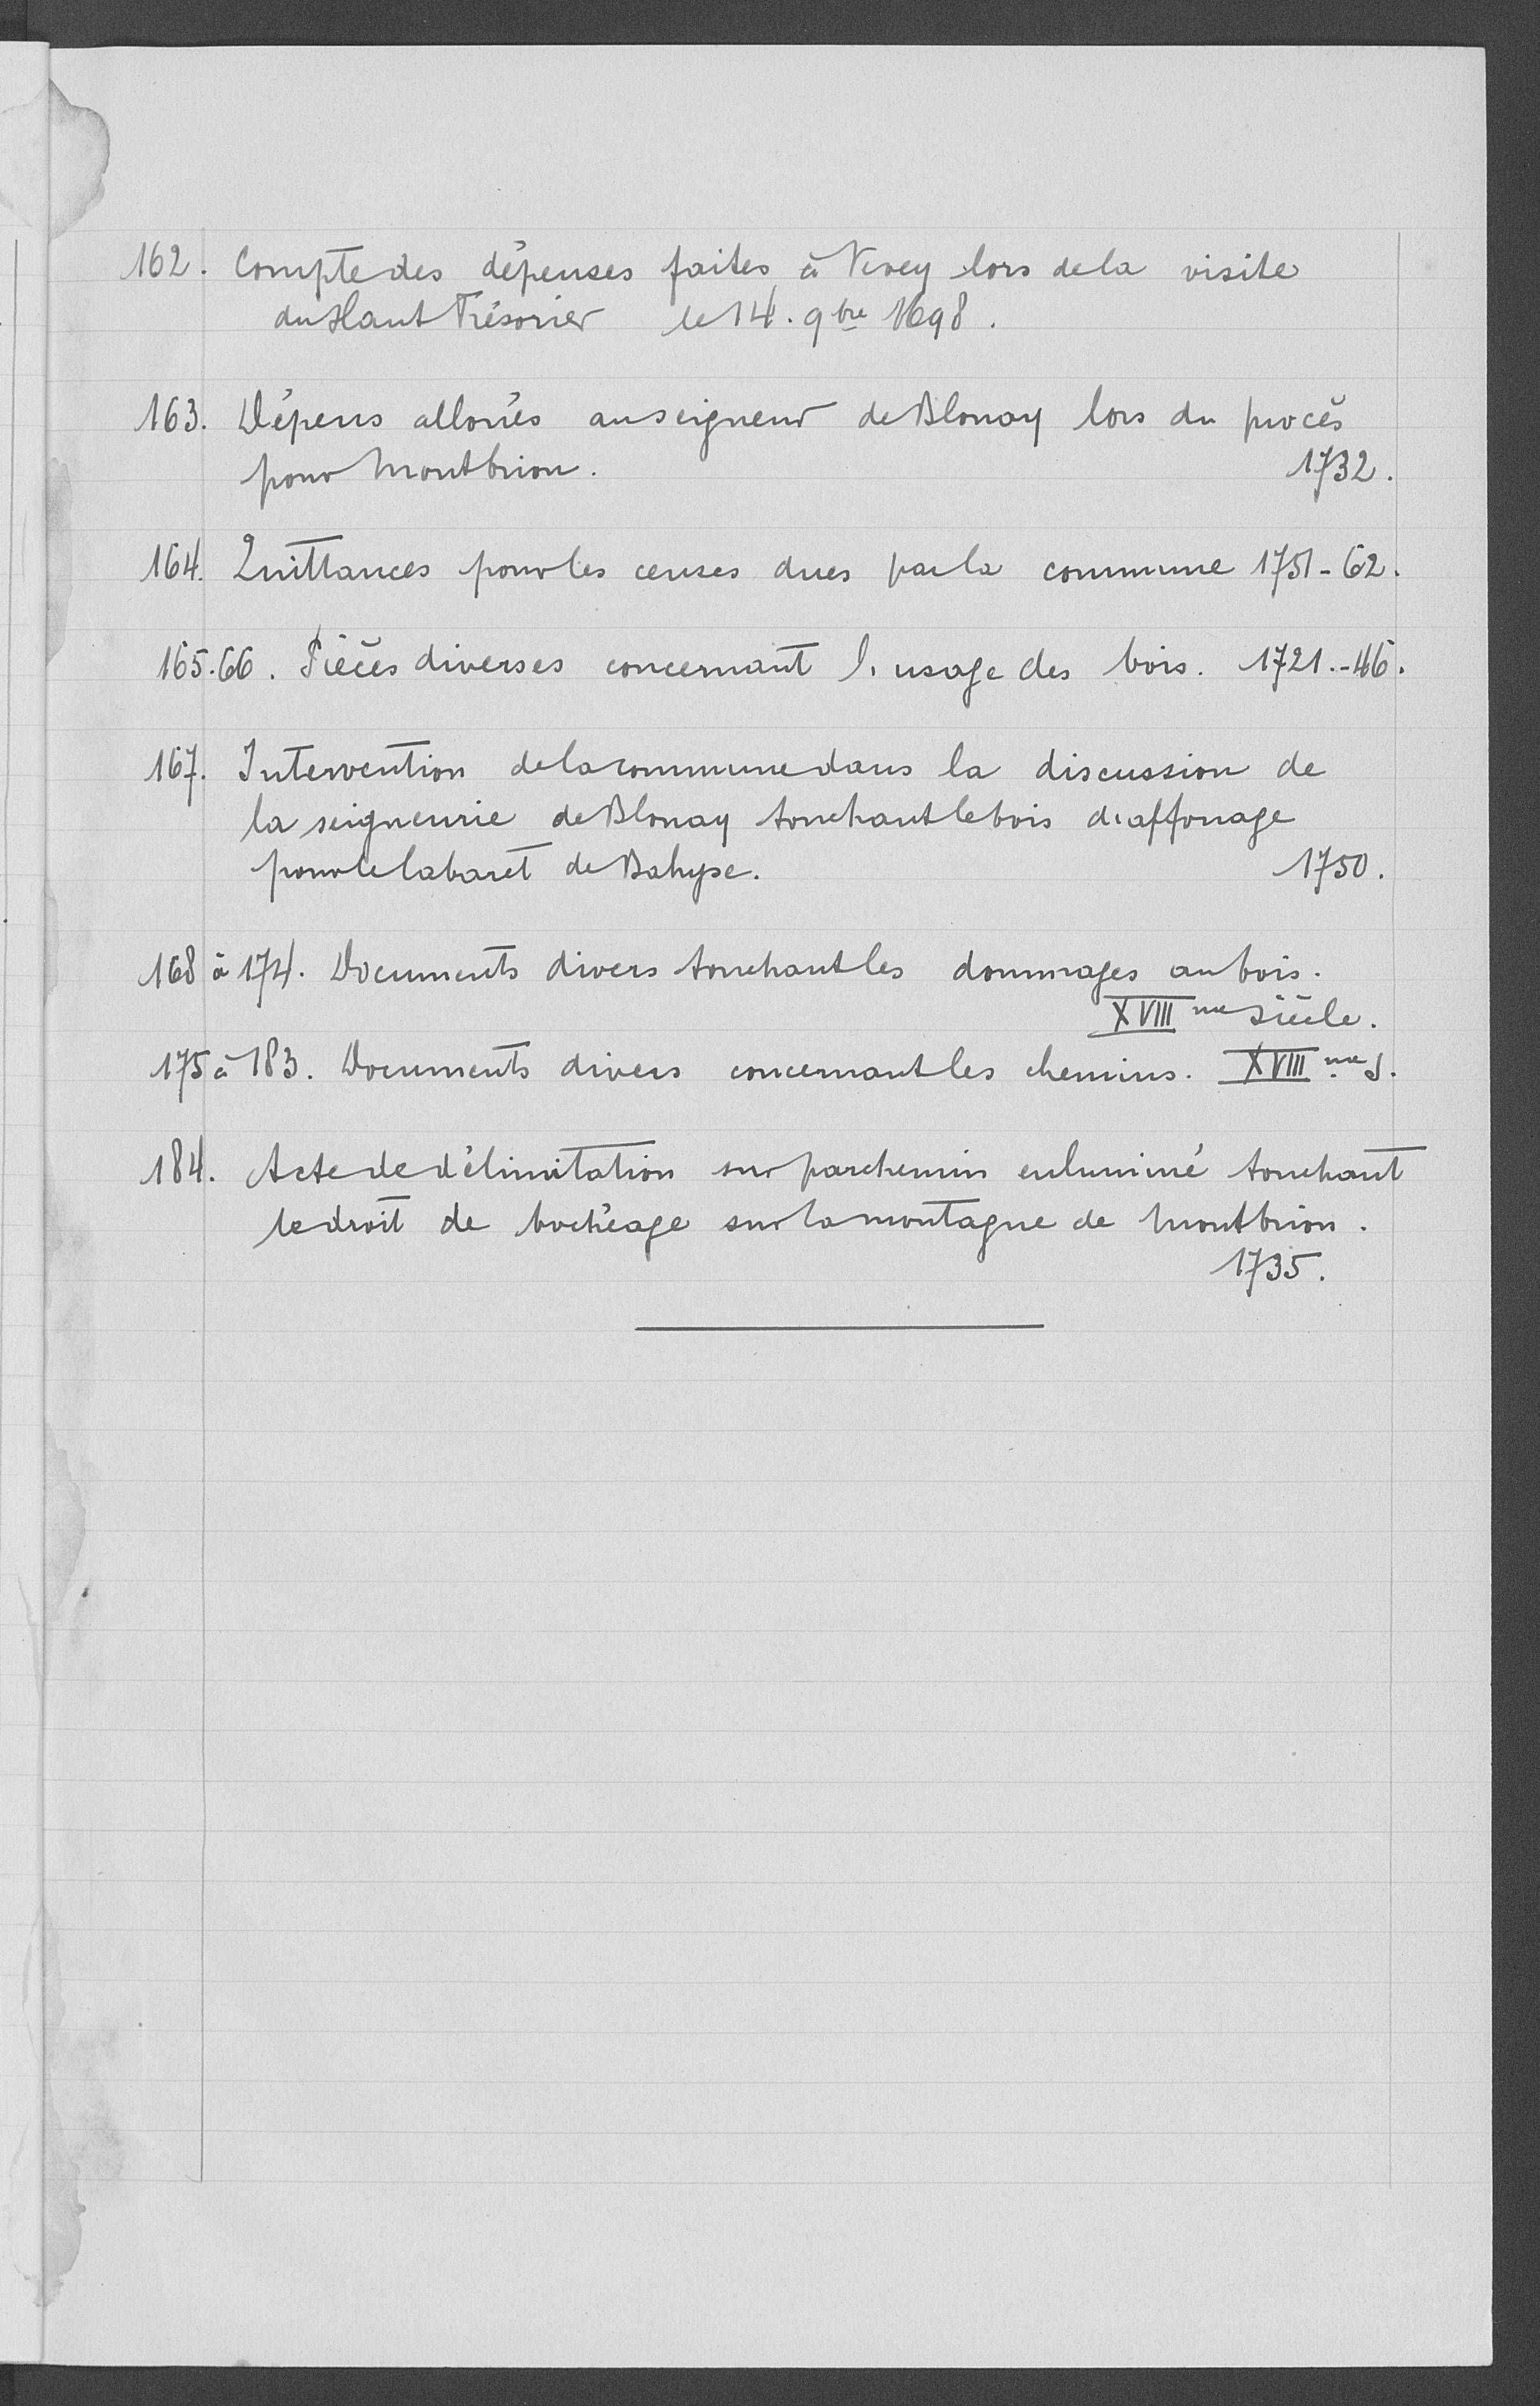 162. Compte des dépenses faites à Vevey lors de la visite
du Haut Trésorier le 14. 9bre 1698.
163. Dépens alloués au seigneur de Blonay lors du procès
pour Montbrion. 1732.
164. Quittances pour les censes dues par la commune 1751-62.
165.66. Pièces diverses concernant l'usage des bois. 1721.-46.
167. Intervention de la commune dans la discussion de
la seigneurie de Blonay touchant le bois d'affouage
pour le labaret de Bahyse. 1750.
168 à 174. Documents divers touchant les dommages au bois.
XVIIIme siècle.
175 à 183. Documents divers concernant les chemins. XVIIIme s.
184. Acte de délimitation sur parchemin enluminé touchant
le droit de bochéage sur la montagne de Montbrion.
1735.